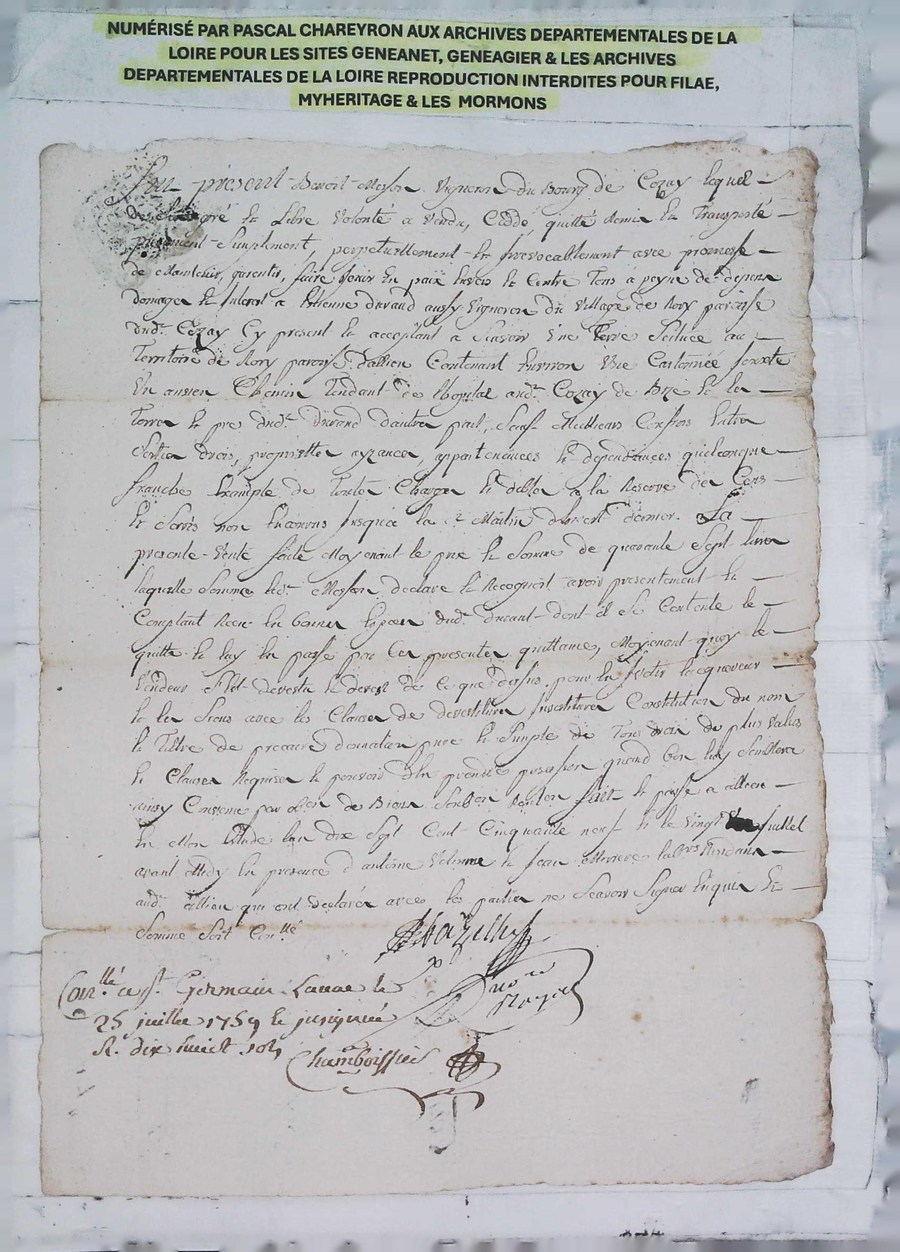 NUMÉRISÉ PAR PASCAL CHAREYRON AUX ARCHIVES DEPARTEMENTALES DE LA
LOIRE POUR LES SITES GENEANET, GENEAGIER & LES ARCHIVES
DEPARTEMENTALES DE LA LOIRE REPRODUCTION INTERDITES POUR FILAE,
MYHERITAGE & LES MORMONS
fut present Benoit Vigneron du Bourg de Cezay lequel
gré et Libre Volonté a Vendu, Cédé, quitté Remis et Transporté
purement Simplement, perpetuellement et irrevocablement avec promesse
de Maintenir, garentir, faire Jouir En paix Envers et Contre Tous a peyne de depens
domages et Interet a Etienne durand aussy Vigneron du Village de Rory paroisse
dud. Cezay Cy present et acceptant a Scavoir Une Terre Scituee au
Territoire de Rory paroisse d'allieu Contenant Environ Une Cartonnée Joux
Un ancien Chemin Tendant de Lhopital aud. Cezay de Bize et la
Terre et pre dud. durand dautre part, Sauf Meilleurs Confins Entrée
Sortie droits, propriettes ayzances, appartenances et dependances quelconque
franche Exempte de Toutes Charges et debtes a la Reserve des Cens
et Servis non Encourus Jusques a la St Martin dernier. La
presente Vente faite Moyenant le prix et Somme de quarante Sept livres
laquelle Somme led. declare et Recognoit avoir presentement et
Comptant Receu En bonnes Especes dud. durant dont il Se Contente le
quitte et luy En passe par Ces presentes quittance, Moyenant quoy le
Vendeur S'est devestu et devest de Ce que dessus pour En Vetir lacquereur
et les Siens avec les Clauses de devestiture Investiture Constitution du nom
et Tiltre de precaire donnation pure et Simple de Tous droits de plus Value
et Clauses Requises et pouvoir d'En prendre possession quand bon luy Semblera
ainsy Convenu par de Biens fait et passé a allieu
En Mon Etude Lan dix Sept Cent Cinquante neuf et le Vingt Juillet
avant Midy En presence d'antoine et Jean labrs Residants
aud. allieu qui ont declarés avec les parties ne Scavoir Signer Enquis et
Somme Soit Con.llé
Con.llé a St Germain Laval le
25 juillet 1759
R. dix huict sols
Chamboissier